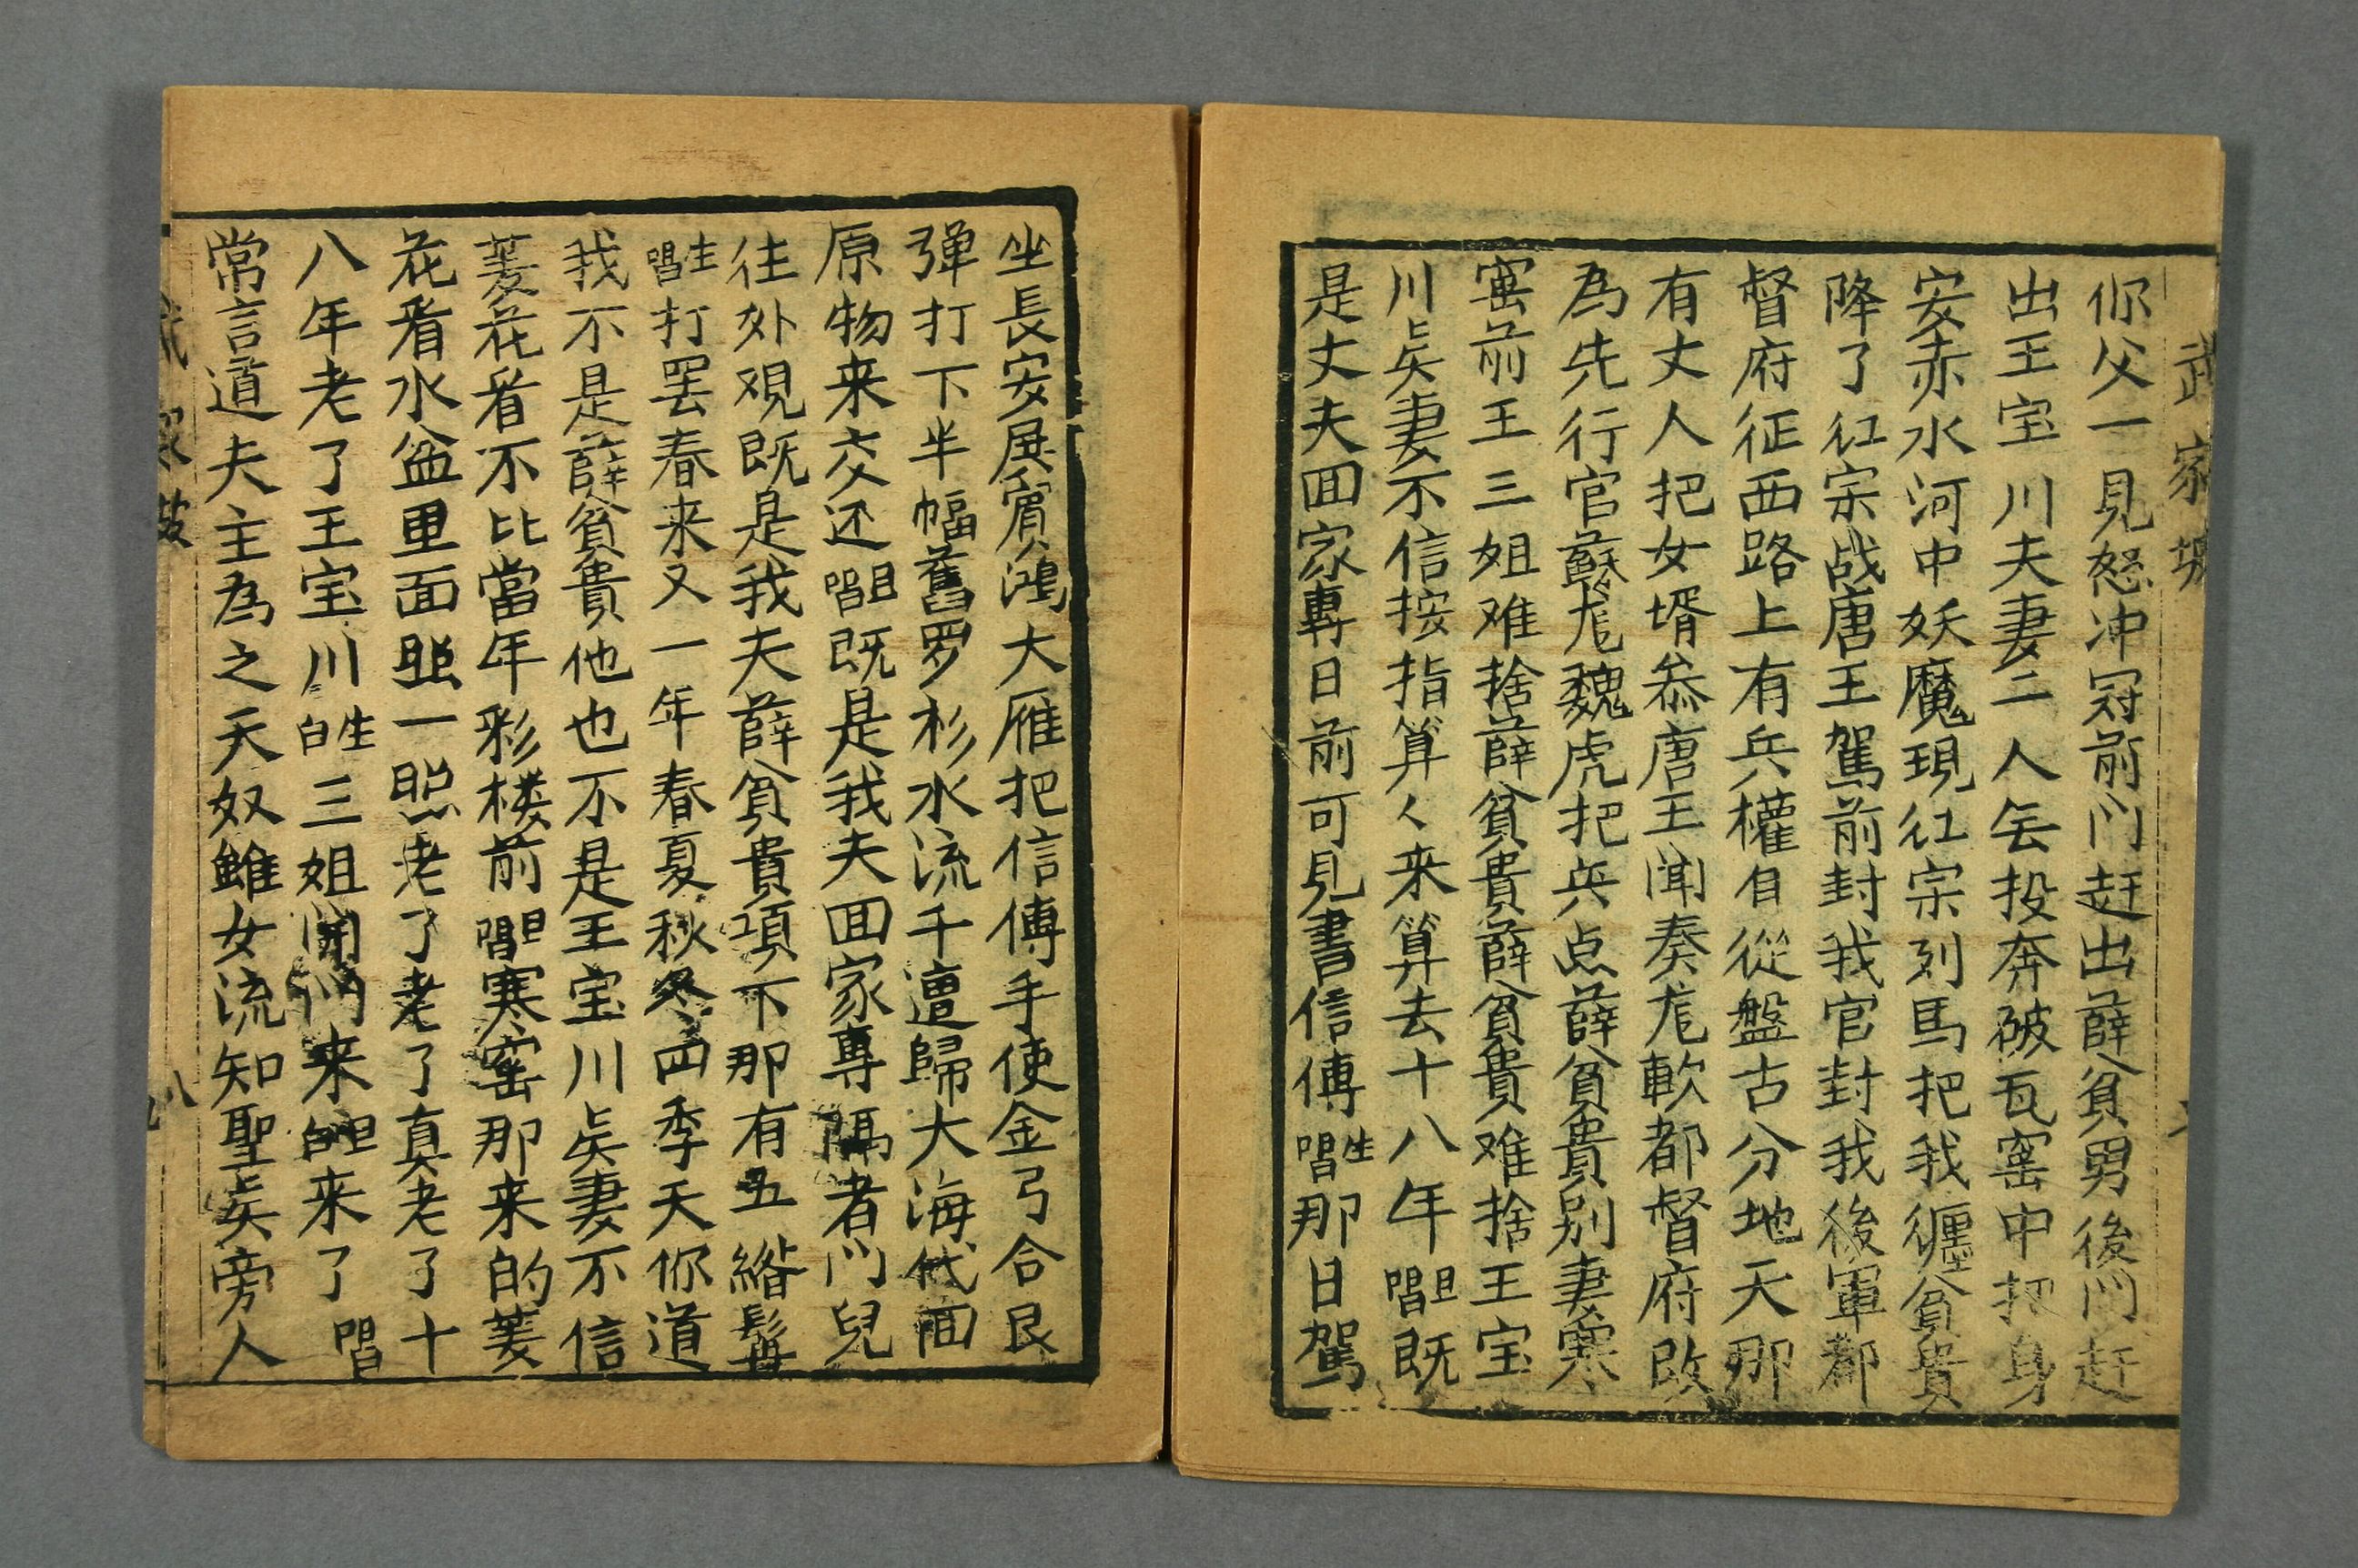 武家坡
你父一見怒冲冠前门赶出薛貧男後门赶
出王宝川夫妻二人無投奔破瓦窑中把身
安赤水河中妖魔現红宗列馬把我纏貧貴
降了红宗战唐王駕前封我官封我後軍都
督府征西路上有兵權自從盤古分地天那
有丈人把女壻叅唐王闻奏龙軟都督府改
為先行官蘇龙魏虎把兵点薛貧貴别妻寒
窑前王三姐难捨薛貧貴薛貧貴难捨王宝
川吴妻不信按指算々来算去十八年唱旦既
是丈夫囬家專日前可見書信傅唱生那日駕
坐長安展賓鴻大雁把信傅手使金弓合艮
弹打下半幅舊罗衫水流千遭歸大海代面
原物来交还唱旦既是我夫囬家專隔者门兒
往外观既是我夫薛貧貴項下那有五綹髯
唱生打罢春来又一年春夏秋冬四季天你道
我不是薛貧貴他也不是王宝川吴妻不信
菱花看不比當年彩楼前唱旦寒窑那来的菱
花看水盆里面照一照老了老了真老了十
八年老了王宝川白生三姐開门来白旦来了唱
常言道夫主為之天奴雖女流知聖吴旁人
八